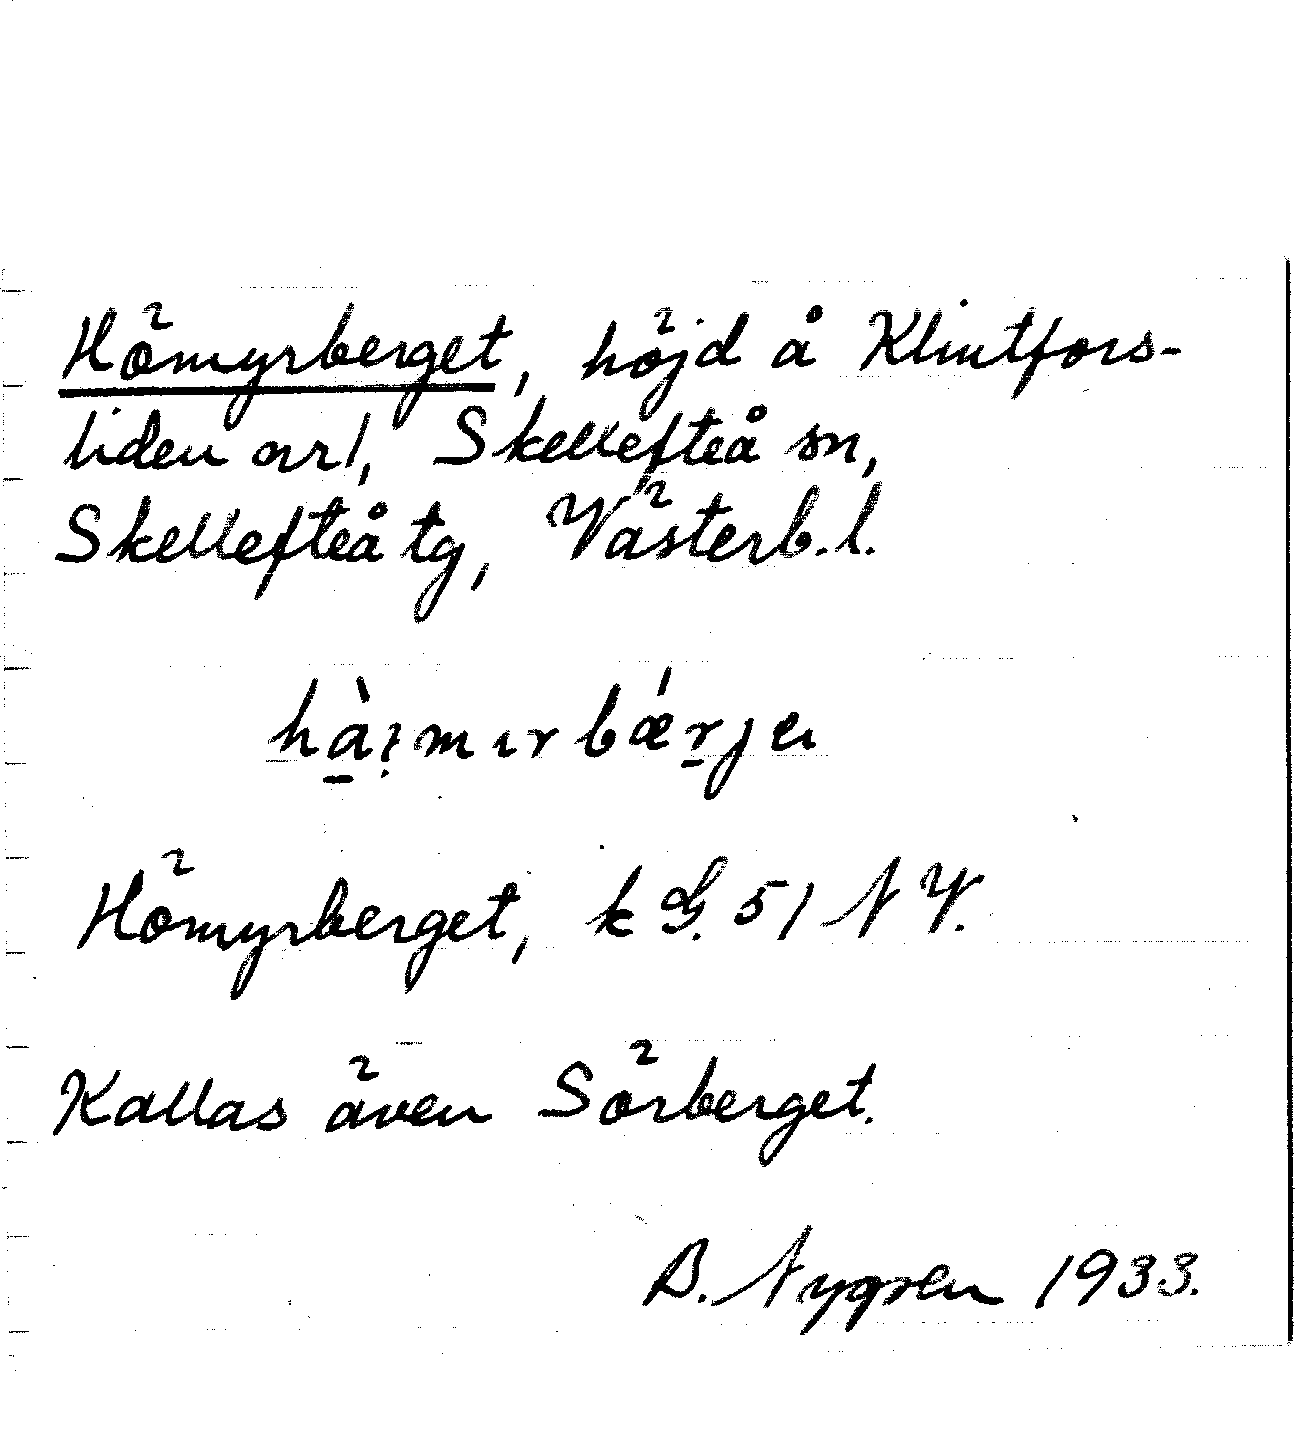 Hömyrberget, höjd å Klintfors-
liden nr 1, Skellefteå sn,
Skellefteå tg, Västerb. l.
Hömyrberget, k G. 51 N V.
Kallas även Sörberget.
B. Nygren 1933.